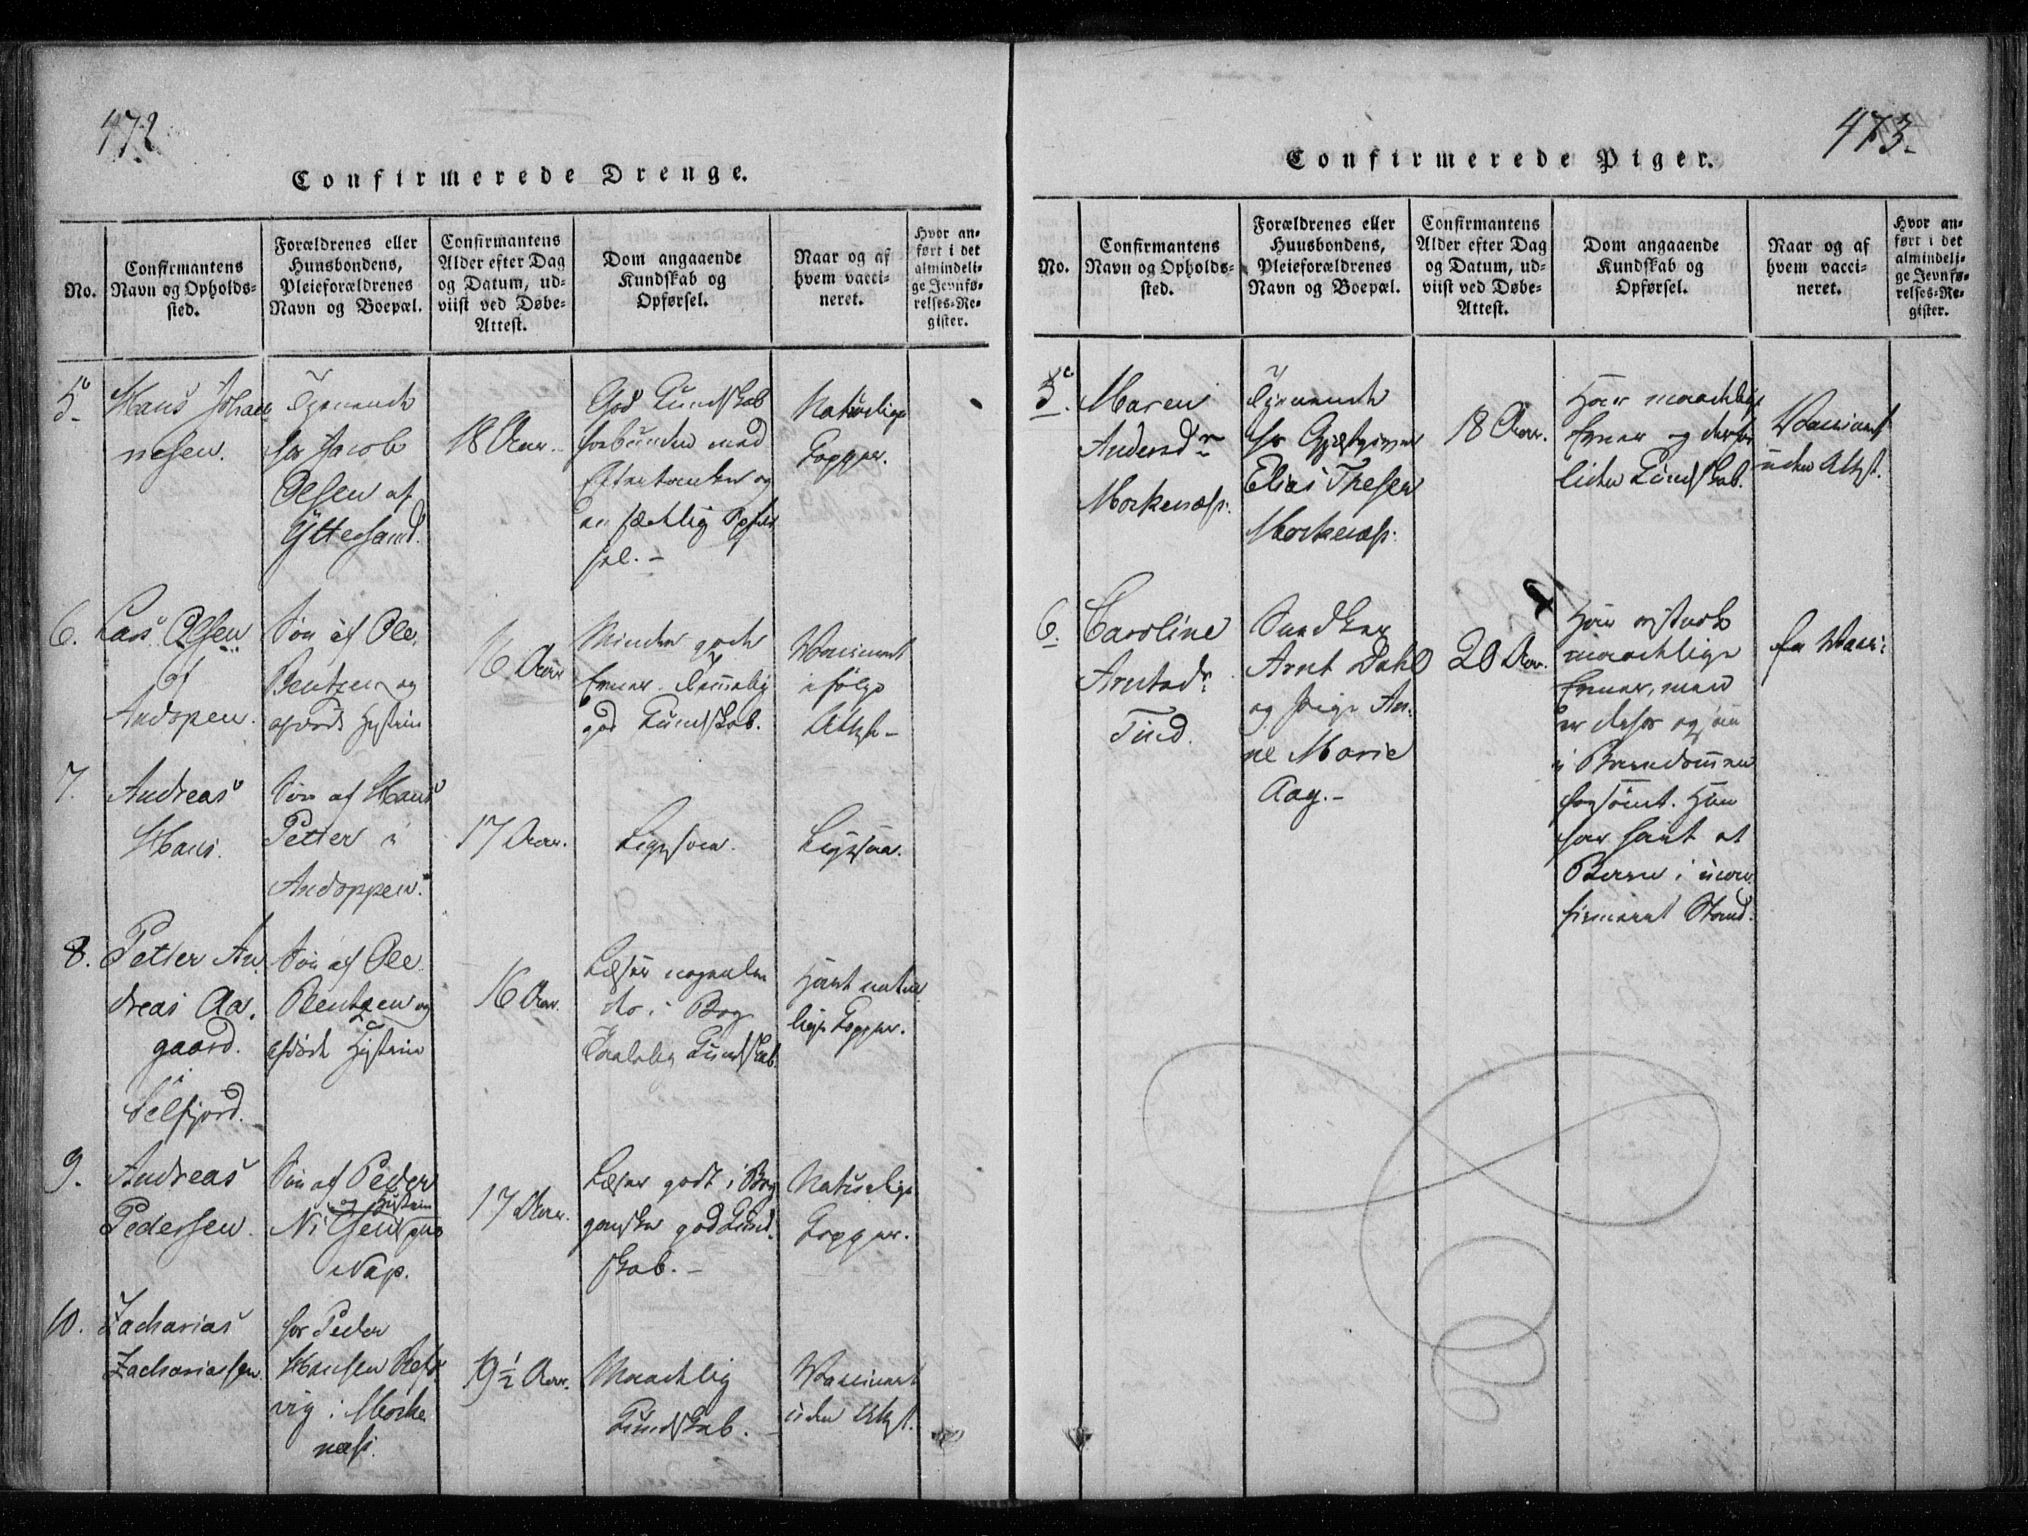 472
Confirmerede Drenge.
No.
Confirmantens
Navn og Opholds-
sted.
Forældrenes eller
Huusbondens,
Pleieforældrenes
Navn og Boepæl.
Confirmantens
Alder efter Dag
og Datum, ud-
viist ved Døbe-
Attest.
Dom angaaende
Kundskab og
Opførsel.
Naar og af
hvem vacci-
neret.
Hvor an-
ført i det
almindeli-
ge Jevnfø-
relses-Re-
gister.
5.
Hans Johan
nesen.
Tjenende
for Jacob
Olsen af
Yttersand.
18 Aar.
God Kundskab
forbunden med
Eftertanke og
en sædelig Opfør
sel. -
Naturlige
Kopper.
6.
Lars Olsen
af
Andopen.
Søn af Ole
Bentzen og
Hustrue
16 Aar
Mindre gode
Evner. Temmelig
god Kundskab.
Vaccineret
ifølge
Attest -
7.
Andreas
Hans.
Søn af Hans
Petter i
Andoppen.
17 Aar.
Ligesaa.
Ligesaa.
8.
Petter An
dreas Aa.
gaard.
Selfjord.
Søn af Ole
Bentzen og
Hustrue
16 Aar.
Læser nogenlun
de i Bog
Kundskab
Havt natur
lige Kopper.
9.
Andreas
Pedersen.
Søn af Peder
og Hustrue
Nilsen paa
Nap.
17 Aar.
Læser godt i Bog
ganske god Kund
skab. -
Naturlige
Kopper.
10.
Zacharias
Zachariassen
for Peder
Hansen Refs
vig i Morke
næss.
19 1/2 Aar.
Maadelig
Kundskab.
Vaccineret
uden Attest.
473.
Confirmerede Piger.
No.
Confirmantens
Navn og Opholds-
sted.
Forældrenes eller
Huusbondens,
Pleieforældrenes
Navn og Boepæl.
Confirmantens
Alder efter Dag
og Datum, ud-
viist ved Døbe-
Attest.
Dom angaaende
Kundskab og
Opførsel.
Naar og af
hvem vacci-
neret.
Hvor an-
ført i det
almindeli-
ge Jevnfø-
relses-Re-
gister.
5.
Maren
Andersdr
Morkenæss.
Tjenende
for Gjæstgiver
Elias Thesen
Morkenæss.
18 Aar.
Har maadelige
Evner og derfor
liden Kundskab.
Vaccineret
uden Attest.
6.
Caroline
Arntsdr
Tind.
Arnt Dahl
og Pige An
ne Marie
Aag. -
20 Aar.
Har
maadelige
Evner, men
er derfor ogsaa
i Barndommen
forsømt. Hun
har havt et
Barn i ucon
firmeret Stand.
er Vacci: